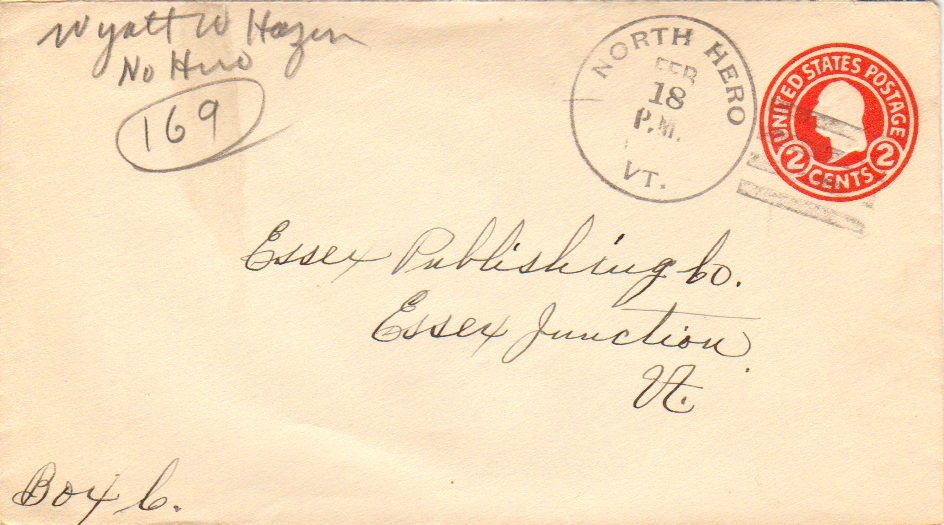 Wyatt W Hazen
No Hero
169
NORTH HERO
FEB
18
P.M.
VT.
UNITED STATES POSTAGE
2 CENTS 2
Essex Publishing Co.
Essex Junction
Vt.
Box 6.